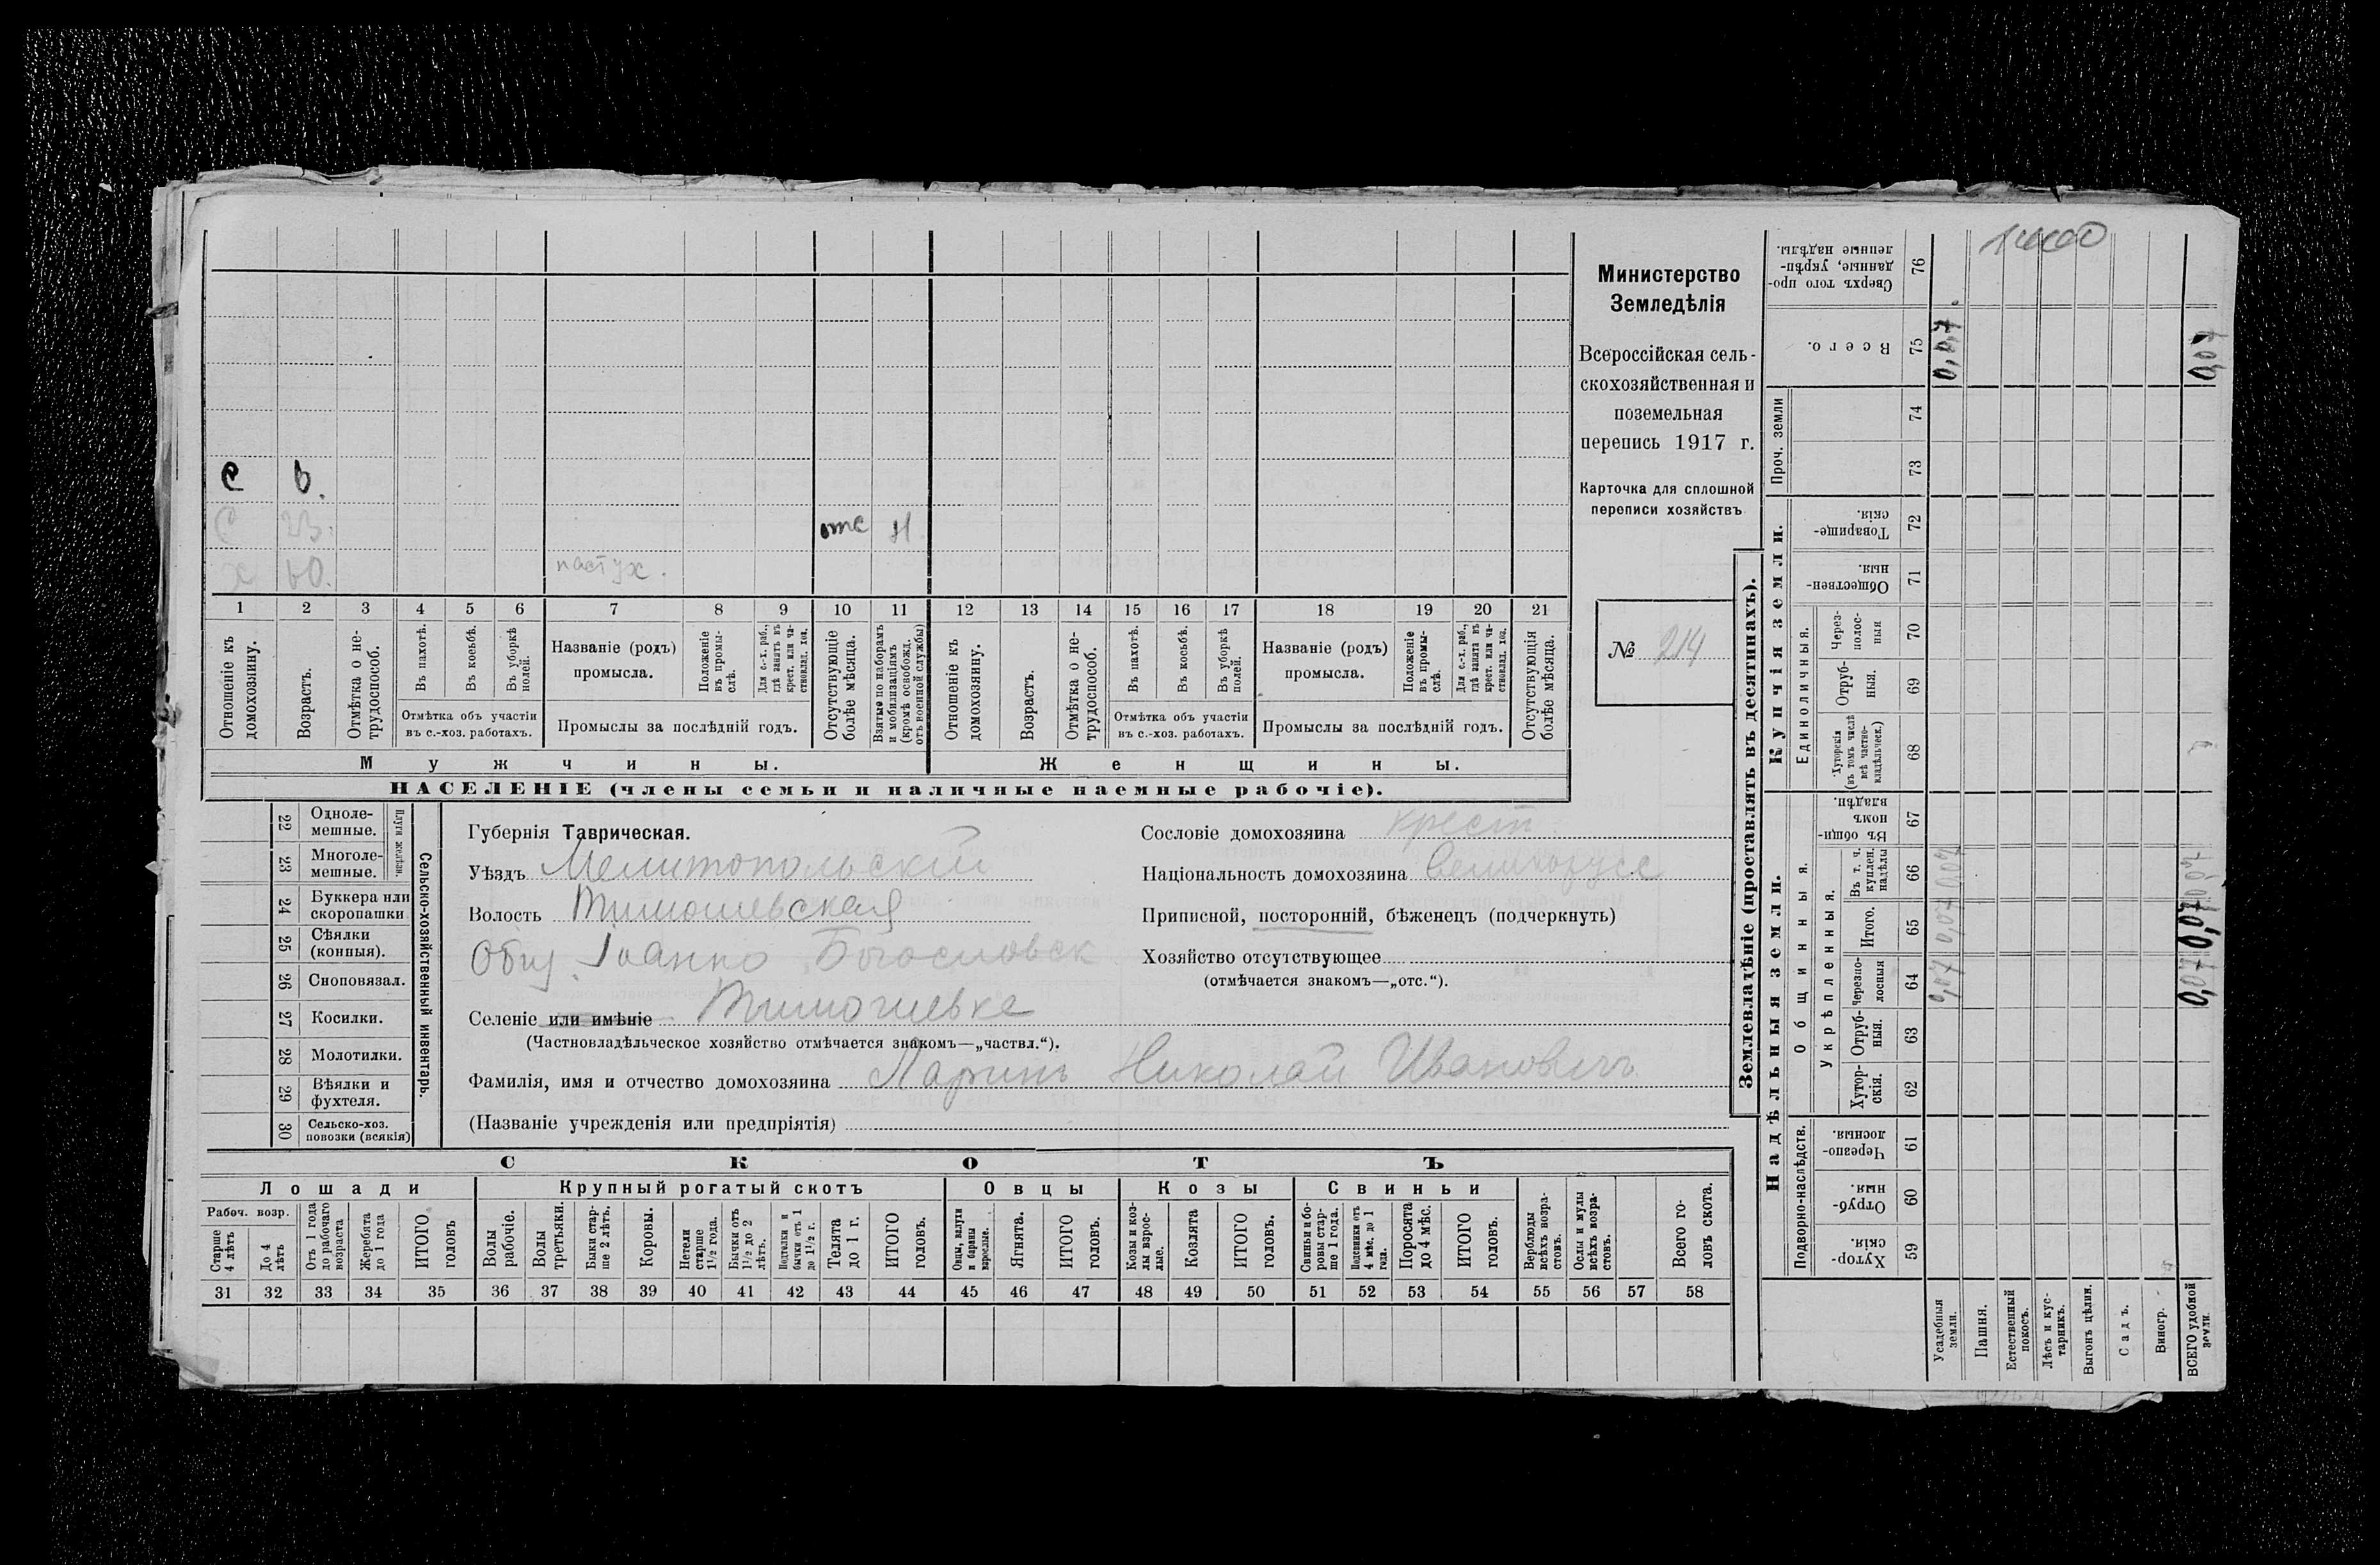 Министерство
Земледѣлія
Всероссійская сель-
скохозяйственная и
поземельная
перепись 1917 г.
Карточка для сплошной
переписи хозяйствъ
№ 214
С
С
х
пастух.
отс
Н
1 2 3 4 5 6 7 8 9 10 11 12 13 14 15 16 17 18 19 20 21
Отношеніе къ домохозяину.
Возрастъ.
Отмѣтка о не-трудоспособ.
Въ пахотѣ.
Въ косьбѣ.
Въ уборкѣ полей.
Отмѣтка объ участіи
въ с.-хоз. работахъ.
Названіе (родъ)
промысла.
Положеніе въ промы-слѣ.
Для с.-х. раб., гдѣ занятъ въ крест. или ча-стновлад. хоз.
Промыслы за послѣдній годъ.
Отсутствующіе болѣе мѣсяца.
Взятые по наборамъ и мобилизаціямъ (кромѣ освобожд. отъ военной службы)
Отношеніе къ домохозяину.
Возрастъ.
Отмѣтка о не-трудоспособ.
Въ пахотѣ.
Въ косьбѣ.
Въ уборкѣ полей.
Отмѣтка объ участіи
въ с.-хоз. работахъ.
Названіе (родъ)
промысла.
Положеніе въ промы-слѣ.
Для с.-х. раб., гдѣ занята въ крест. или ча-стновлад. хоз.
Промыслы за послѣдній годъ.
Отсутствующія болѣе мѣсяца.
Мужчины.
Женщины.
НАСЕЛЕНІЕ (члены семьи и наличные наемные рабочіе).
Сельско-хозяйственный инвентарь.
Плуги желѣзн.
22 Одноле-мешные.
23 Многоле-мешные.
24 Буккера или скоропашки
25 Сѣялки (конныя).
26 Сноповязал.
27 Косилки.
28 Молотилки.
29 Вѣялки и фухтеля.
30 Сельско-хоз. повозки (всякія)
Губернія Таврическая.
Уѣздъ Мелитопольскій
Волость Тимошевская
Общ. Іоанно Богословск
Селеніе или имѣніе Тимошевка
(Частновладѣльческое хозяйство отмѣчается знакомъ—„частвл.“).
Фамилія, имя и отчество домохозяина Ларинъ Николай Ивановичъ
(Названіе учрежденія или предпріятія)
Сословіе домохозяина крест
Національность домохозяина Великорусс
Приписной, посторонній, бѣженецъ (подчеркнуть)
Хозяйство отсутствующее
(отмѣчается знакомъ—„отс.“).
СКОТЪ
Лошади
Рабоч. возр.
Старше 4 лѣтъ
До 4 лѣтъ
Отъ 1 года до рабочаго возраста
Жеребята до 1 года
ИТОГО головъ
Крупный рогатый скотъ
Волы рабочіе.
Волы третьяки.
Быки стар-ше 2 лѣтъ.
Коровы.
Нетели старше 1½ года.
Бычки отъ 1½ до 2 лѣтъ.
Подтелки и бычки отъ 1 до 1½ г.
Телята до 1 г.
ИТОГО головъ.
Овцы
Овцы, валухи и бараны взрослые.
Ягнята.
ИТОГО головъ.
Козы
Козы и коз-лы взрос-лые.
Козлята
ИТОГО головъ.
Свиньи
Свиньи и бо-ровы стар-ше 1 года.
Подсвинки отъ 4 мѣс. до 1 года.
Поросята до 4 мѣс.
ИТОГО головъ.
Верблюды всѣхъ возра-стовъ.
Ослы и мулы всѣхъ возра-стовъ.
Всего го-ловъ скота.
31 32 33 34 35 36 37 38 39 40 41 42 43 44 45 46 47 48 49 50 51 52 53 54 55 56 57 58
Землевладѣніе (проставлять въ десятинахъ).
Надѣльныя земли.
Подворно-наслѣдств.
Хутор-скія. 59
Отруб-ныя. 60
Черезпо-лосныя. 61
Общинныя.
Укрѣпленныя.
Хутор-скія. 62
Отруб-ныя. 63
Черезпо-лосныя 64
Итого. 65
Въ т. ч. куплен. надѣлы 66
Въ общи-номъ владѣн. 67
Купчія земли.
Единоличныя.
Хуторскія (въ томъ числѣ всѣ частно-владѣльческ.) 68
Отруб-ныя. 69
Через-полос-ныя 70
Обществен-ныя. 71
Товарище-скія. 72
Проч. земли
73
74
Всего. 75
Сверхъ того про-данные, укрѣп-ленные надѣлы. 76
Усадебныя земли.
0,07 0,07 0,07
0,07
Пашня.
Естественный покосъ.
Лѣсъ и кус-тарникъ.
Выгонъ цѣлин.
Садъ.
Виногр.
ВСЕГО удобной земли.
0,07 0,07 0,07
0,07